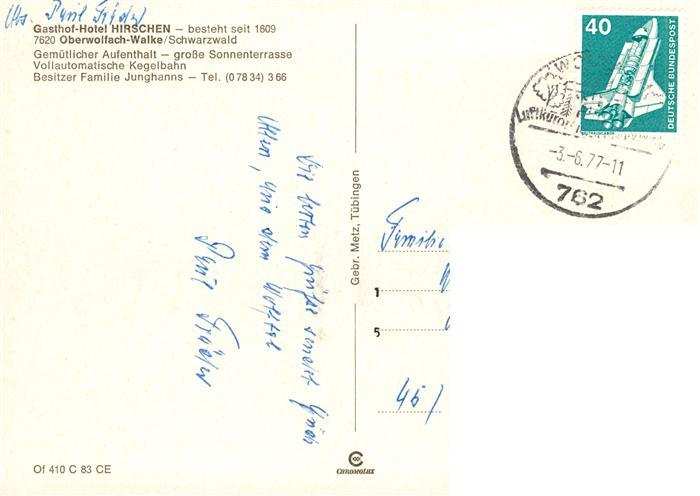 Abs. Paul
Gasthof-Hotel HIRSCHEN – besteht seit 1609
7620 Oberwolfach-Walke/Schwarzwald
Gemütlicher Aufenthalt – große Sonnenterrasse
Vollautomatische Kegelbahn
Besitzer Familie Junghanns – Tel. (0 78 34) 3 66
Die besten Grüße sendet Euch
Allen, aus dem Wolftal
Paul
Gebr. Metz, Tübingen
40
DEUTSCHE BUNDESPOST
Luftkurort
-3.-6.77-11
762
Familie
1
5
46/
Of 410 C 83 CE
CHROMOLUX